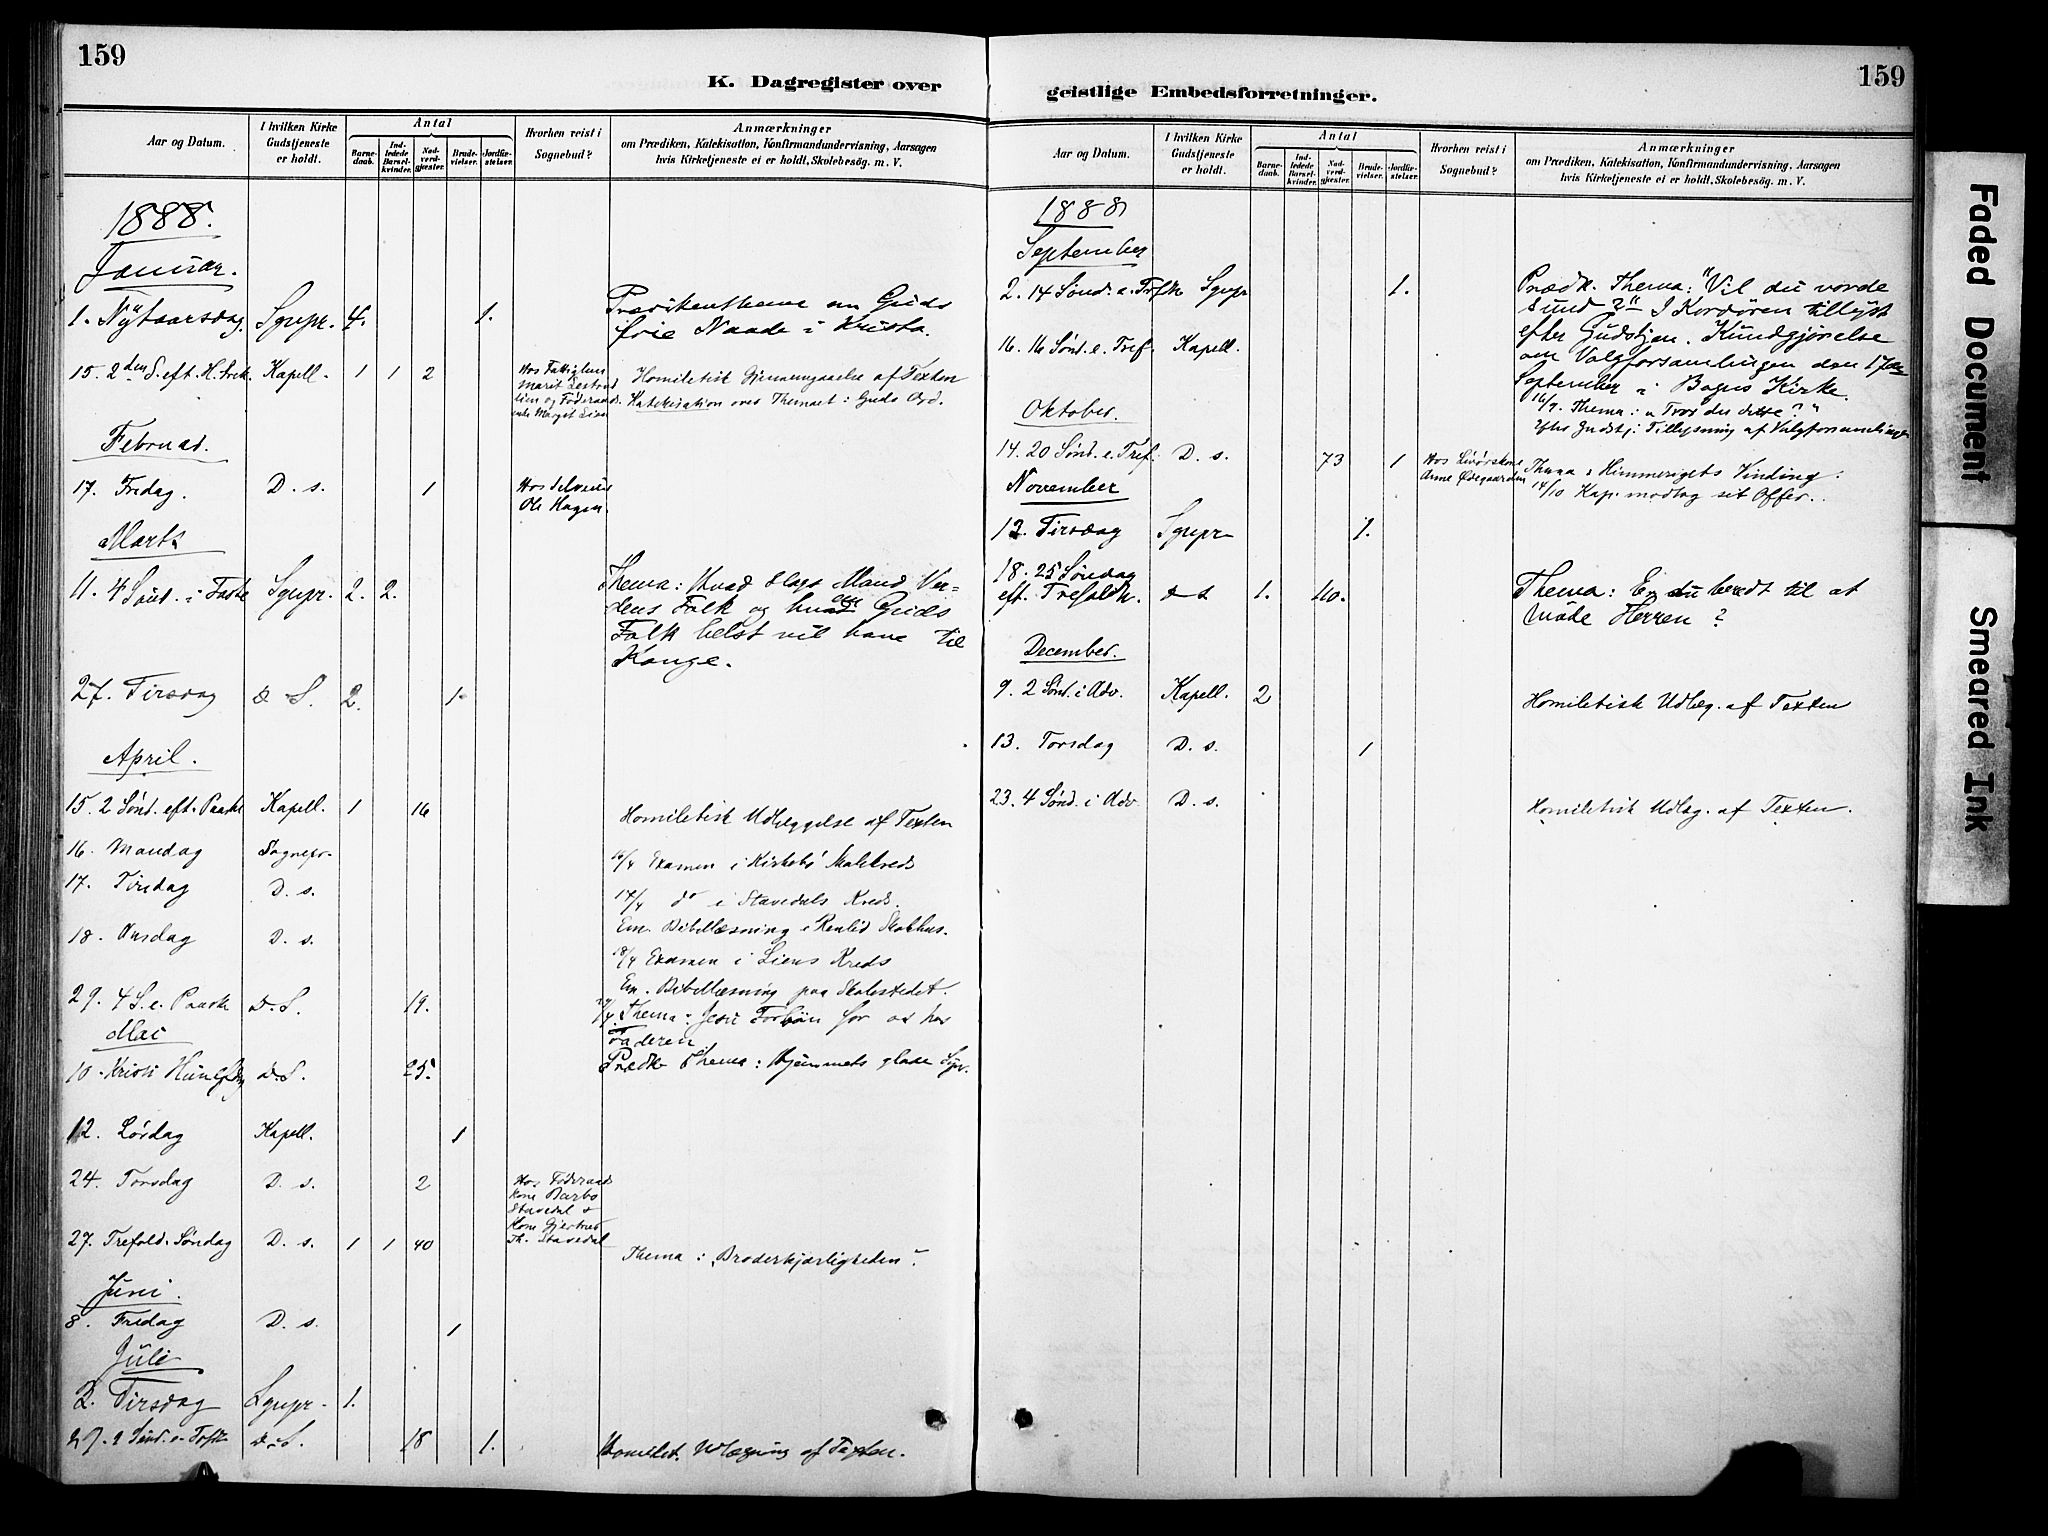 159
K. Dagregister over
Aar og Datum.
I hvilken Kirke Gudstjeneste er holdt.
Antal
Barnedaab.
Indledede Barselkvinder.
Nadverdgjester.
Brudevielser.
Jordfæstelser.
Hvorhen reist i Sognebud?
Anmærkninger
om Prædiken, Katekisation, Konfirmandundervisning, Aarsagen
hvis Kirketjeneste ei er holdt, Skolebesög. m. V.
1888.
Januar.
1. Nytaarsdag Sgnpr. 4. 1. Prædikenthema om Guds
frie Naade i Kristo.
15. 2den S. eft. H. trek. Kapell. 1 1 2 Homiletisk Gjennemgaaelse af Texten
Katekisation over Themaet: Guds Ord.
Februar.
17. Fredag. D. s. 1 Hos
Ole Hagen.
Marts
11. 4 Sönd. i Faste Sgnpr. 2. 2. Thema: Hvad Slags Mand Ver-
dens Folk og hvad Guds
Folk helst vil have til
Konge.
27. Tirsdag d S. 2. 1.
April.
15. 2 Sönd. eft. Paaske Kapell. 1 16 Homiletisk Udlæggelse af Texten
16. Mandag Sognepr. 16/4 Examen i Kirkebö Skolekreds
17. Tirsdag D. s. 17/4 do i Stavedals Kreds.
Em. Bibellæsning i Renlid Skolhus.
18. Onsdag D. s. 18/4 Examen i Liens Kreds
Em. Bibellæsning paa Skolestedet.
29. 4 S. e. Paaske D. S. 19. 29/4 Thema: Jesu Forbön for os hos
Faderen
Mai
10. Kristi Himlfdg D. S. 25. Prædk Thema: Hjemmets glade
12. Lördag Kapell. 1
24. Torsdag D. s. 2 Hos Föderaads
kone Barbo
Stavedal &
Kone
Th. Stavedal
27. Trefold. Söndag D. s. 1 1 40 Thema: "Broderkjærligheden".
Juni.
8. Fredag D. s. 1
Juli
2. Tirsdag Sgnpr. 1.
27. 9 Sönd. e. Trft D. S. 18 1. Homilet. Udlægning af Texten.
159
geistlige Embedsforretninger.
Aar og Datum.
I hvilken Kirke Gudstjeneste er holdt.
Antal
Barnedaab.
Indledede Barselkvinder.
Nadverdgjester.
Brudevielser.
Jordfæstelser.
Hvorhen reist i Sognebud?
Anmærkninger
om Prædiken, Katekisation, Konfirmandundervisning, Aarsagen
hvis Kirketjeneste ei er holdt, Skolebesög. m. V.
1888
September
2. 14 Sönd. e. Trfk Sgnpr 1. Prædk. Thema: "Vil du vorde
sund?" I Kordören tillyst
efter Gudstjen. Kundgjörelse
om Valgforsamlingen den 17de
September i Bagns Kirke.
16. 16 Sönd. e. Tref. Kapell. 16/9. Thema: "Tror du dette?"
Efter Gudstj: Tillysning af Valgforsamlingen
Oktober.
14. 20 Sönd. e. Tref. D. s. 73 1 Hos
Anne Ödegaarden Thema: Himmerigets Vinding:
14/10 Kap. modtog sit Offer.
November
13. Tirsdag Sgnpr 1.
18. 25 Söndag
eft. Trefoldh. d s 1. 40. Thema: Er du beredt til at
möde Herren?
December.
9. 2 Sönd. i Adv. Kapell. 2 Homiletisk Udlæg. af Texten
13. Torsdag D. s. 1
23. 4 Sönd. i Adv. D. s. Homiletisk Udlæg. af Texten.
Faded Document
Smeared Ink